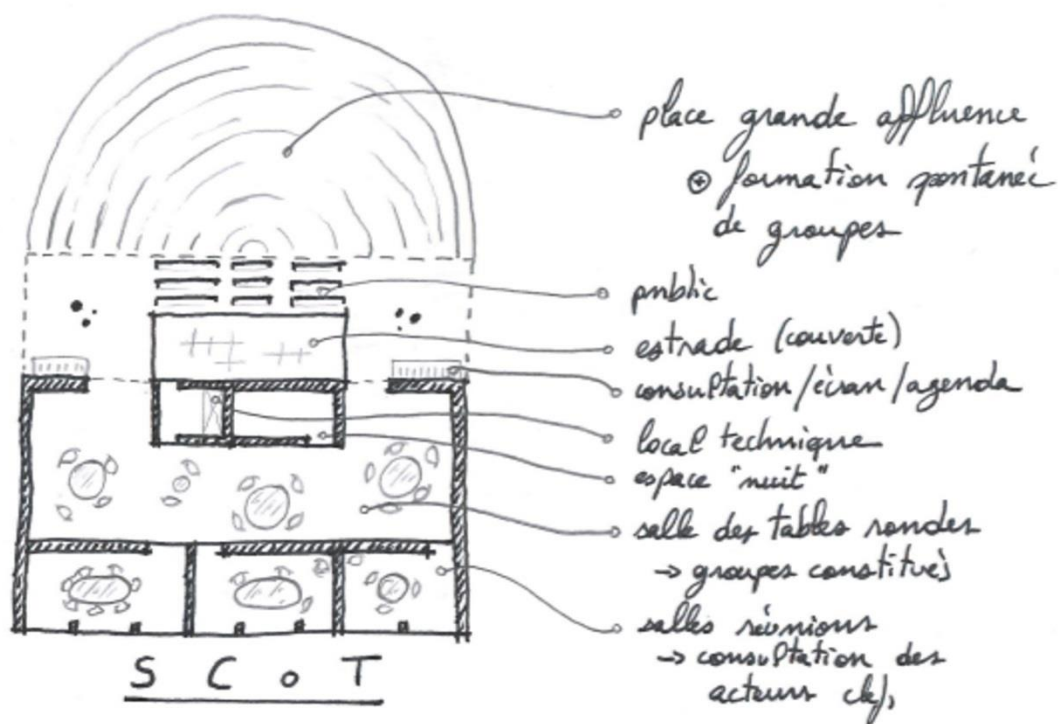 place grande affluence
⊕ formation spontanée
de groupes
public
estrade (couverte)
consultation/écran/agenda
local technique
espace "nuit"
salle des tables rondes
→ groupes constitués
salles réunions
→ consultation des
acteurs clefs
S C o T